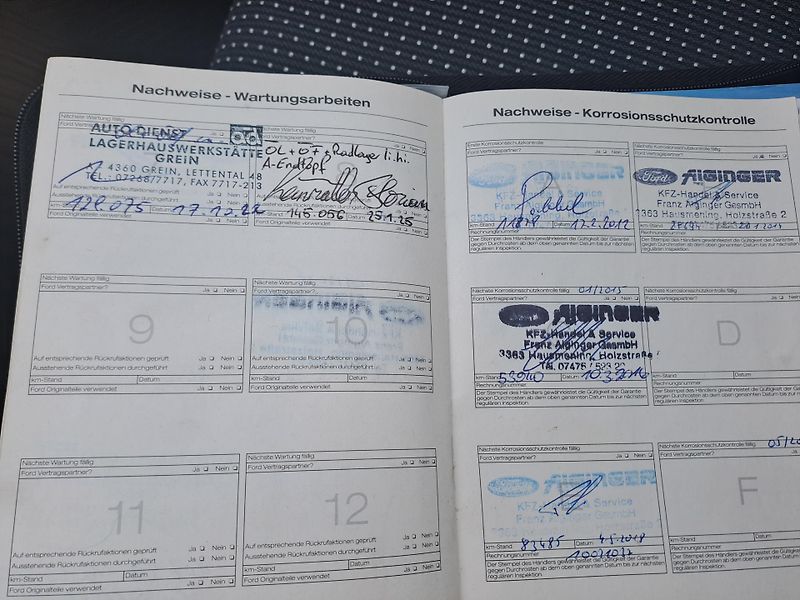 Nachweise - Wartungsarbeiten
Nächste Wartung fällig
Ford Vertragspartner? Ja Nein
AUTO DIENST
LAGERHAUSWERKSTÄTTE
GREIN
4360 GREIN, LETTENTAL 48
TEL.: 07268/7717, FAX 7717-213
Auf entsprechende Rückrufaktionen geprüft
Ausstehende Rückrufaktionen durchgeführt
km-Stand 17.10.22
Ford Originalteile verwendet
ÖL + ÖF + Radlager li. hi.
A-Endtopf
km-Stand 145.056 25.1.25
Ford Originalteile verwendet
Nächste Wartung fällig
Ford Vertragspartner? Ja Nein
9
Auf entsprechende Rückrufaktionen geprüft Ja Nein
Ausstehende Rückrufaktionen durchgeführt Ja Nein
km-Stand Datum
Ford Originalteile verwendet Ja Nein
Nächste Wartung fällig
Ford Vertragspartner? Ja Nein
10
Auf entsprechende Rückrufaktionen geprüft Ja Nein
Ausstehende Rückrufaktionen durchgeführt Ja Nein
km-Stand Datum
Ford Originalteile verwendet Ja Nein
Nächste Wartung fällig
Ford Vertragspartner? Ja Nein
11
Auf entsprechende Rückrufaktionen geprüft Ja Nein
Ausstehende Rückrufaktionen durchgeführt Ja Nein
km-Stand Datum
Ford Originalteile verwendet Ja Nein
Nächste Wartung fällig
Ford Vertragspartner? Ja Nein
12
Auf entsprechende Rückrufaktionen geprüft Ja Nein
Ausstehende Rückrufaktionen durchgeführt Ja Nein
km-Stand Datum
Ford Originalteile verwendet Ja Nein
Nachweise - Korrosionsschutzkontrolle
Erste Korrosionsschutzkontrolle
Ford Vertragspartner? Ja Nein
Ford AIGINGER
KFZ-Handel & Service
Franz Aiginger GesmbH
3363 Hausmening, Holzstraße
km-Stand Datum 17.2.2012
Rechnungsnummer
Der Stempel des Händlers gewährleistet die Gültigkeit der Garantie
gegen Durchrosten ab dem oben genannten Datum bis zur nächsten
regulären Inspektion.
Nächste Korrosionsschutzkontrolle fällig
Ford Vertragspartner? Ja Nein
Ford AIGINGER
KFZ-Handel & Service
Franz Aiginger GesmbH
3363 Hausmening, Holzstraße 2
km-Stand
Rechnungsnummer
Der Stempel des Händlers gewährleistet die Gültigkeit der Garantie
gegen Durchrosten ab dem oben genannten Datum bis zur nächsten
regulären Inspektion.
Nächste Korrosionsschutzkontrolle fällig 01/2015
Ford AIGINGER
KFZ-Handel & Service
Franz Aiginger GesmbH
3363 Hausmening, Holzstraße
Tel. 07475 /
km-Stand Datum 10.3.2016
Rechnungsnummer
Der Stempel des Händlers gewährleistet die Gültigkeit der Garantie
gegen Durchrosten ab dem oben genannten Datum bis zur nächsten
regulären Inspektion.
Nächste Korrosionsschutzkontrolle fällig
Ford Vertragspartner? Ja Nein
D
km-Stand Datum
Rechnungsnummer
Der Stempel des Händlers gewährleistet die Gültigkeit der Garantie
gegen Durchrosten ab dem oben genannten Datum bis zur nächsten
regulären Inspektion.
Nächste Korrosionsschutzkontrolle fällig
Ford Vertragspartner? Ja Nein
Ford AIGINGER
KFZ-Handel & Service
Franz Aiginger GesmbH
km-Stand 83485 Datum 4.5.2018
Rechnungsnummer
Der Stempel des Händlers gewährleistet die Gültigkeit der Garantie
gegen Durchrosten ab dem oben genannten Datum bis zur nächsten
regulären Inspektion.
Nächste Korrosionsschutzkontrolle fällig 05/20
Ford Vertragspartner?
F
km-Stand Datum
Rechnungsnummer
Der Stempel des Händlers gewährleistet die Gültigkeit der Garantie
gegen Durchrosten ab dem oben genannten Datum bis zur nächsten
regulären Inspektion.